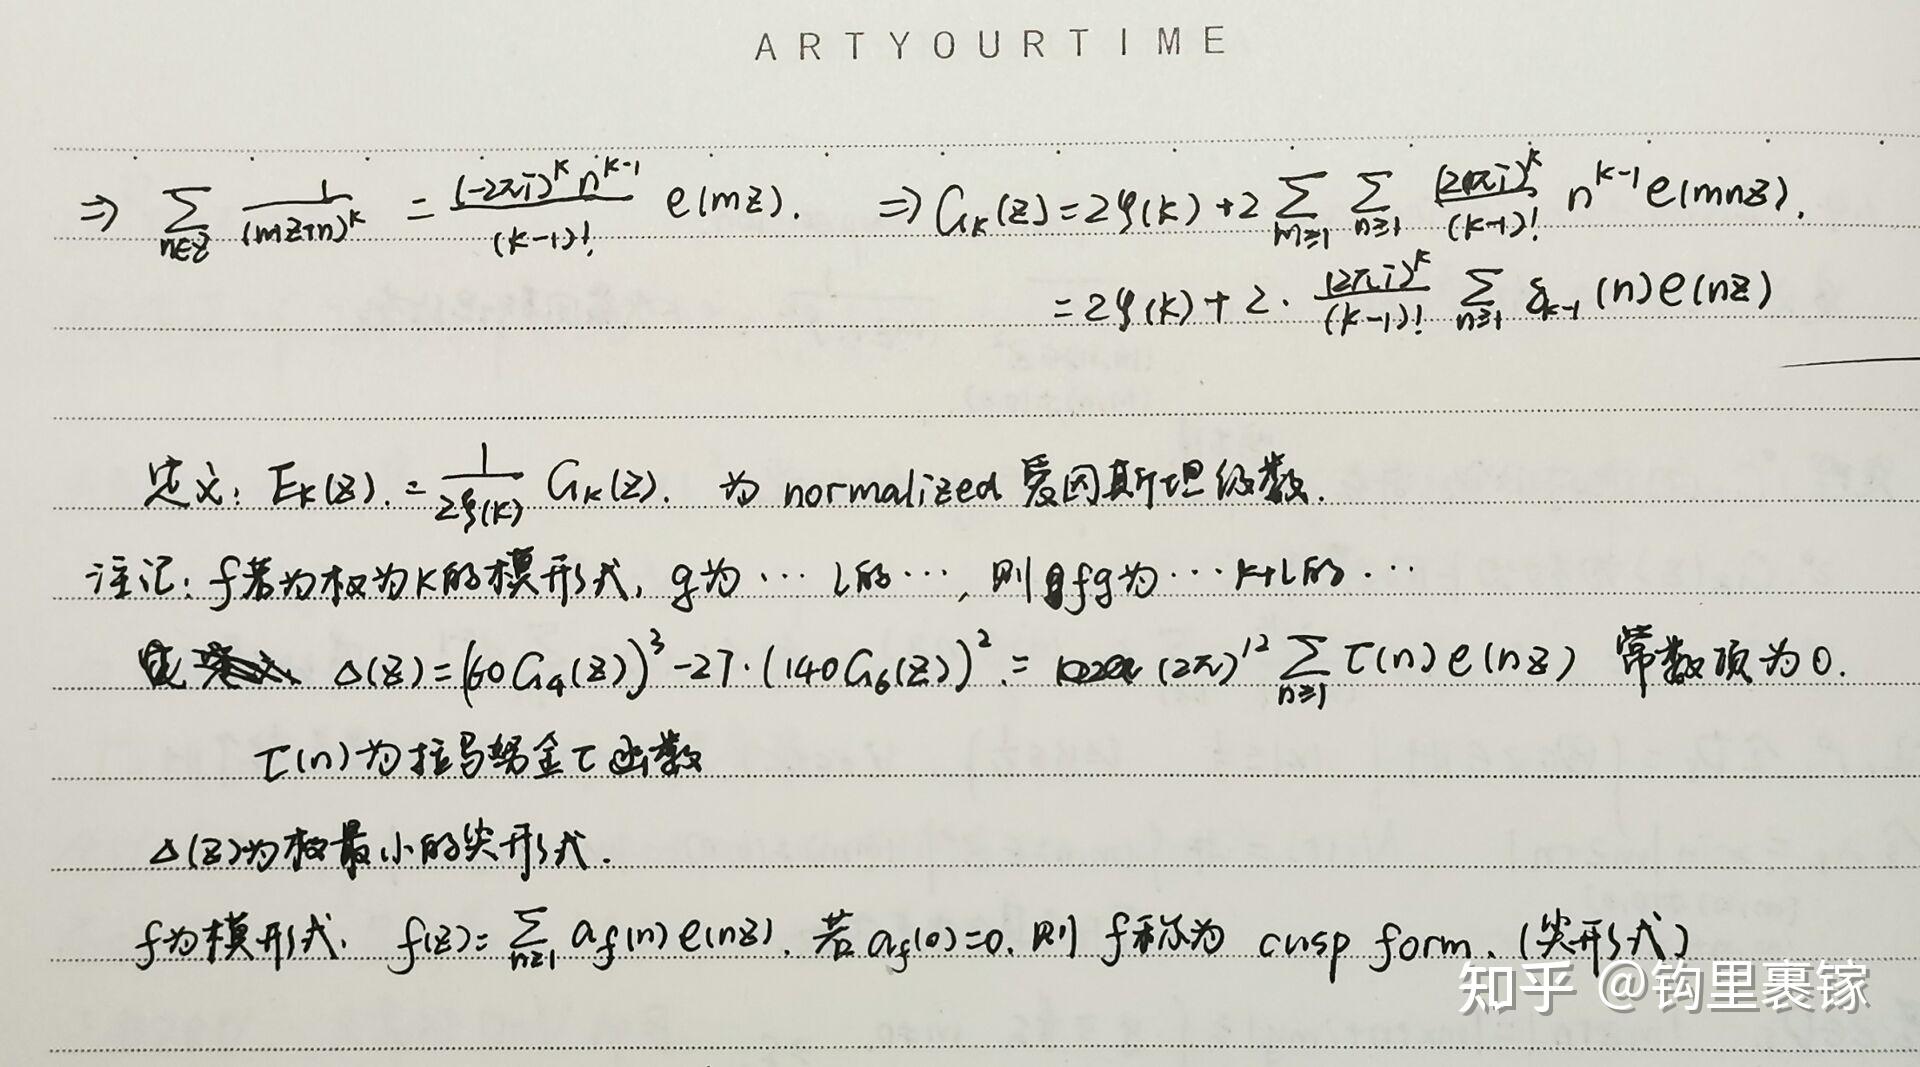 ARTYOURTIME
⇒ ∑_{n∈Z} 1/(mz+n)^k = (-2πi)^k n^{k-1}/(k-1)! e(mz). ⇒ G_k(z) = 2ζ(k) + 2 ∑_{m≥1} ∑_{n≥1} (2πi)^k/(k-1)! n^{k-1} e(mnz).
= 2ζ(k) + 2 · (2πi)^k/(k-1)! ∑_{n≥1} δ_{k-1}(n) e(nz)
定义: E_k(z). = 1/2ζ(k) G_k(z). 为 normalized 爱因斯坦级数.
注记: f若为权为k的模形式, g为 ··· l的 ···, 则 fg为 ··· k+l的 ···
Δ(z) = (60G_4(z))^3 - 27·(140G_6(z))^2 = (2π)^{12} ∑_{n≥1} τ(n) e(nz) 常数项为0.
τ(n)为拉马努金τ函数
Δ(z)为权最小的尖形式.
f为模形式. f(z) = ∑_{n≥1} a_f(n) e(nz). 若a_f(0)=0. 则 f称为 cusp form. (尖形式)
知乎 @钩里裹镓